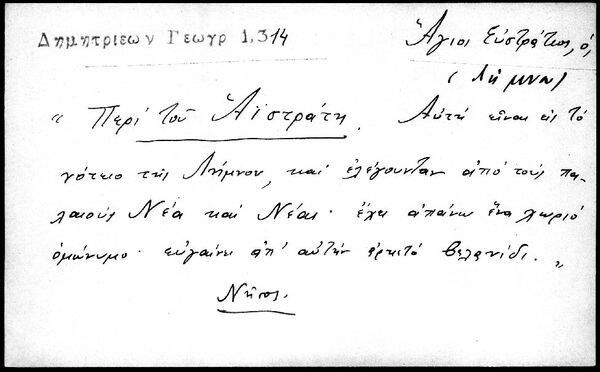 Δημητριεων Γεωγρ 1,314
Ἅγιος Εὐστράτιος, ὁ,
(Λῆμνος)
„ Περί τοῦ Ἀϊστράτη. Αὐτή εἶναι εἰς τό
νότειο τῆς Λήμνου, καί ἐλέγουνταν ἀπό τούς πα-
λαιούς Νέα καί Νέαι· ἔχει ἀπάνω ἕνα χωριό
ὁμώνυμο· εὐγαίνει ἀπ' αὐτήν ἀρκετό βελανίδι. „
Νῆσος.